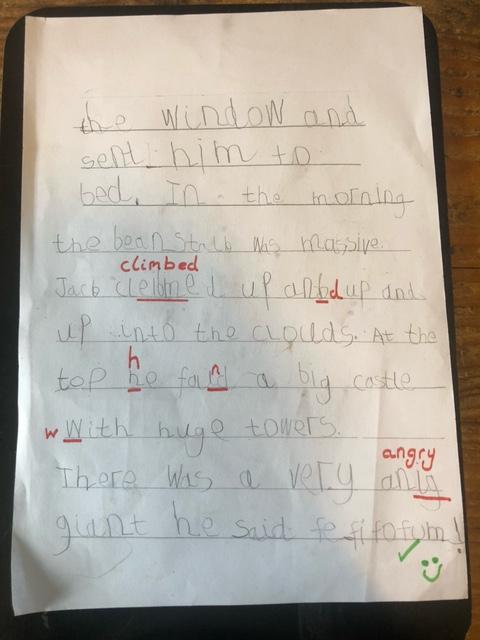 the window and
sent him to
bed. In the morning
the beanstalk was massive.
climbed
Jack cleibmed up anbd up and
up into the clouds. At the
h n
top he faud a big castle
w With huge towers.
angry
There was a very anlg
giant he said fe fi fo fum!